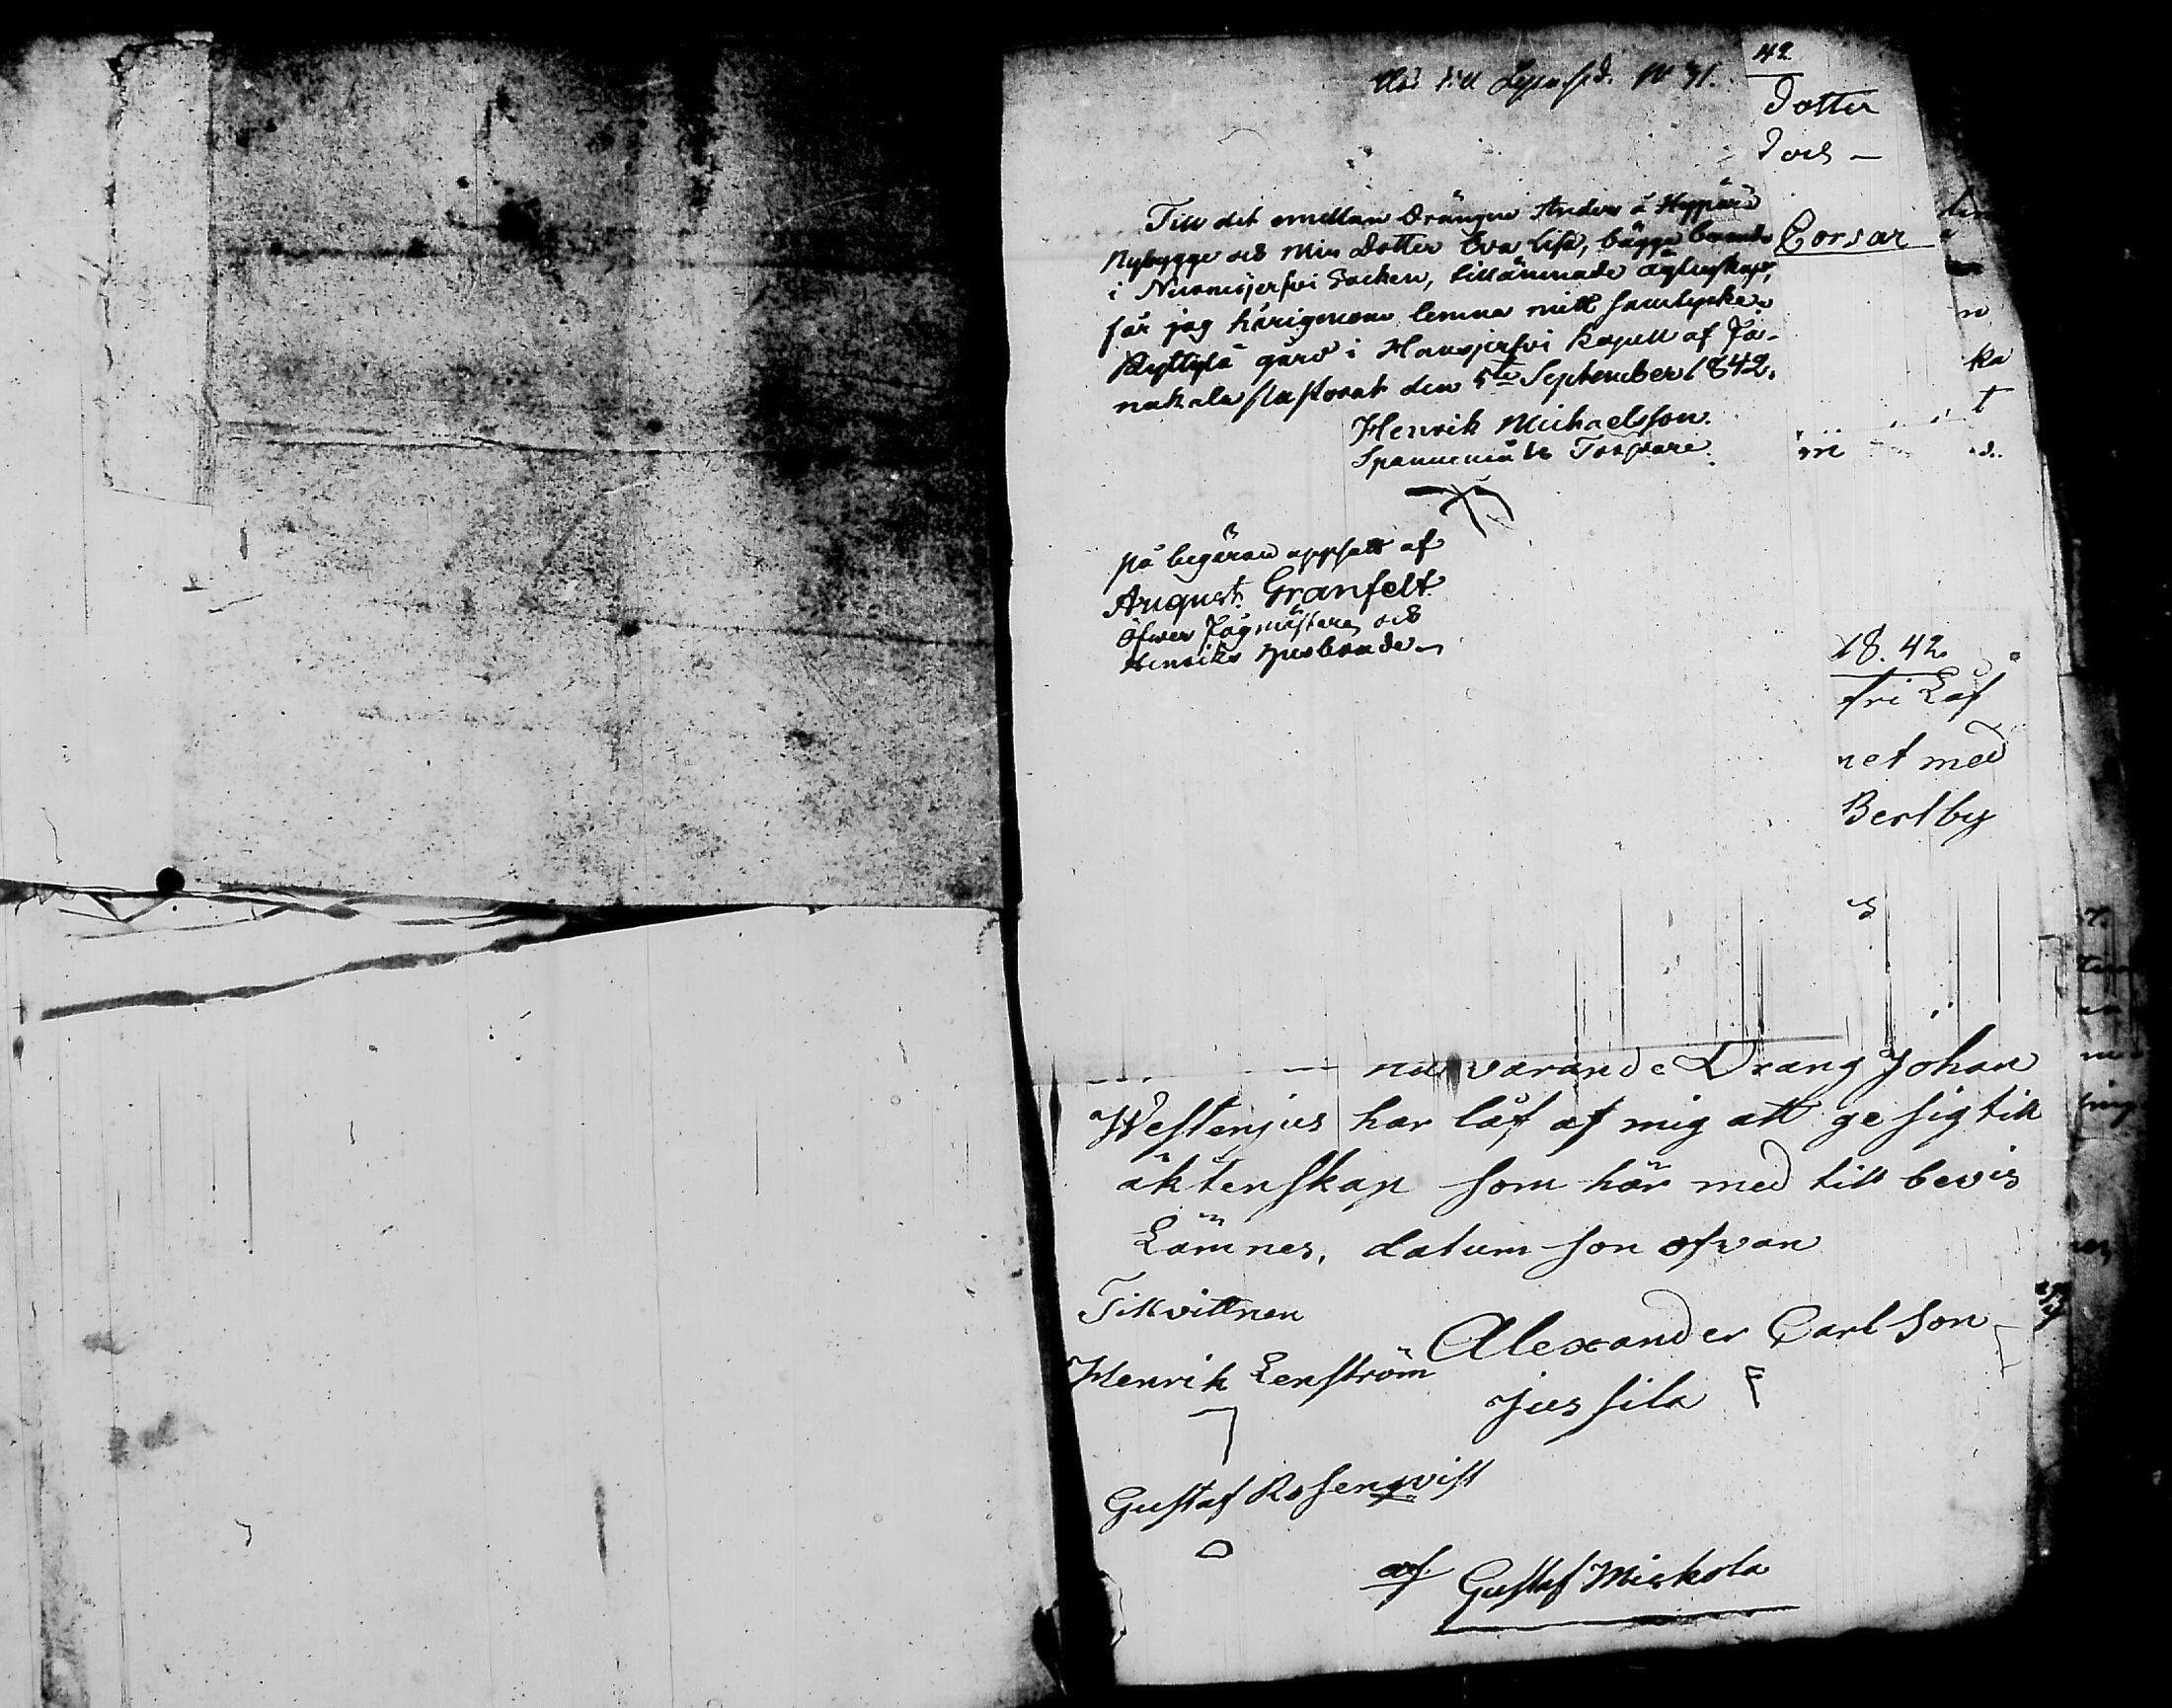 till N 31.
Till det emellan Drängen Anders å Hyppärä
Nybygge och Min Dotter Eva Lisa, bägge boende
i Nurmijerfvi Socken, tillämnade ägtenskap,
får jag härigenom lemna mitt samtycke.
Kyttylä gård i Hausjerfvi Kapell af Ja-
nakala Pastorat den 5te September 1842.
Henrik Michaelsson.
Torpare
på begäran uppsatt af
August Granfelt
Öfwer Jägmästare och
Henriks Husbonde
42
Dotter
Doch
Corsar
ka
t
18.42.
fri Låf
net med
Bertby
nu varande Dräng Johan
Westenjus har låf af mig att ge sig till
äktenskap som här med till bevis
Lämnes, datum som ofvan
Till vittnen
Alexander Carlson
Henrik Lenström
Jussila
Gustaf Rosenqvist
af Gustaf Miekola